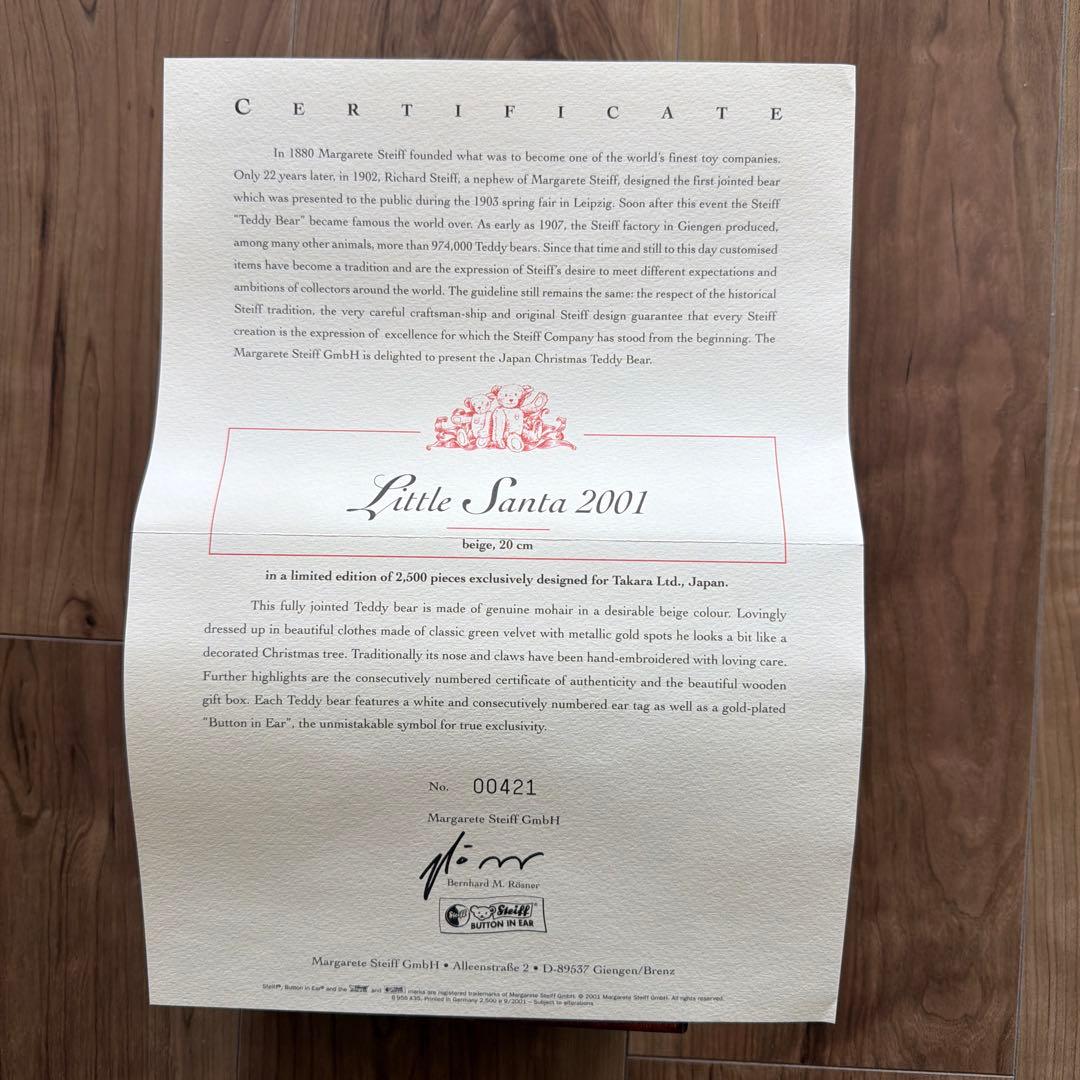 CERTIFICATE
In 1880 Margarete Steiff founded what was to become one of the world's finest toy companies.
Only 22 years later, in 1902, Richard Steiff, a nephew of Margarete Steiff, designed the first jointed bear
which was presented to the public during the 1903 spring fair in Leipzig. Soon after this event the Steiff
"Teddy Bear" became famous the world over. As early as 1907, the Steiff factory in Giengen produced,
among many other animals, more than 974,000 Teddy bears. Since that time and still to this day customised
items have become a tradition and are the expression of Steiff's desire to meet different expectations and
ambitions of collectors around the world. The guideline still remains the same: the respect of the historical
Steiff tradition, the very careful craftsman-ship and original Steiff design guarantee that every Steiff
creation is the expression of excellence for which the Steiff Company has stood from the beginning. The
Margarete Steiff GmbH is delighted to present the Japan Christmas Teddy Bear.
Little Santa 2001
beige, 20 cm
in a limited edition of 2,500 pieces exclusively designed for Takara Ltd., Japan.
This fully jointed Teddy bear is made of genuine mohair in a desirable beige colour. Lovingly
dressed up in beautiful clothes made of classic green velvet with metallic gold spots he looks a bit like a
decorated Christmas tree. Traditionally its nose and claws have been hand-embroidered with loving care.
Further highlights are the consecutively numbered certificate of authenticity and the beautiful wooden
gift box. Each Teddy bear features a white and consecutively numbered ear tag as well as a gold-plated
"Button in Ear", the unmistakable symbol for true exclusivity.
No. 00421
Margarete Steiff GmbH
Bernhard M. Rösner
Steiff Steiff®
BUTTON IN EAR
Margarete Steiff GmbH • Alleenstraße 2 • D-89537 Giengen/Brenz
Steiff®, Button in Ear® and the and marks are registered trademarks of Margarete Steiff GmbH. © 2001 Margarete Steiff GmbH. All rights reserved.
Printed in Germany 2,500 9/2001 – Subject to alterations